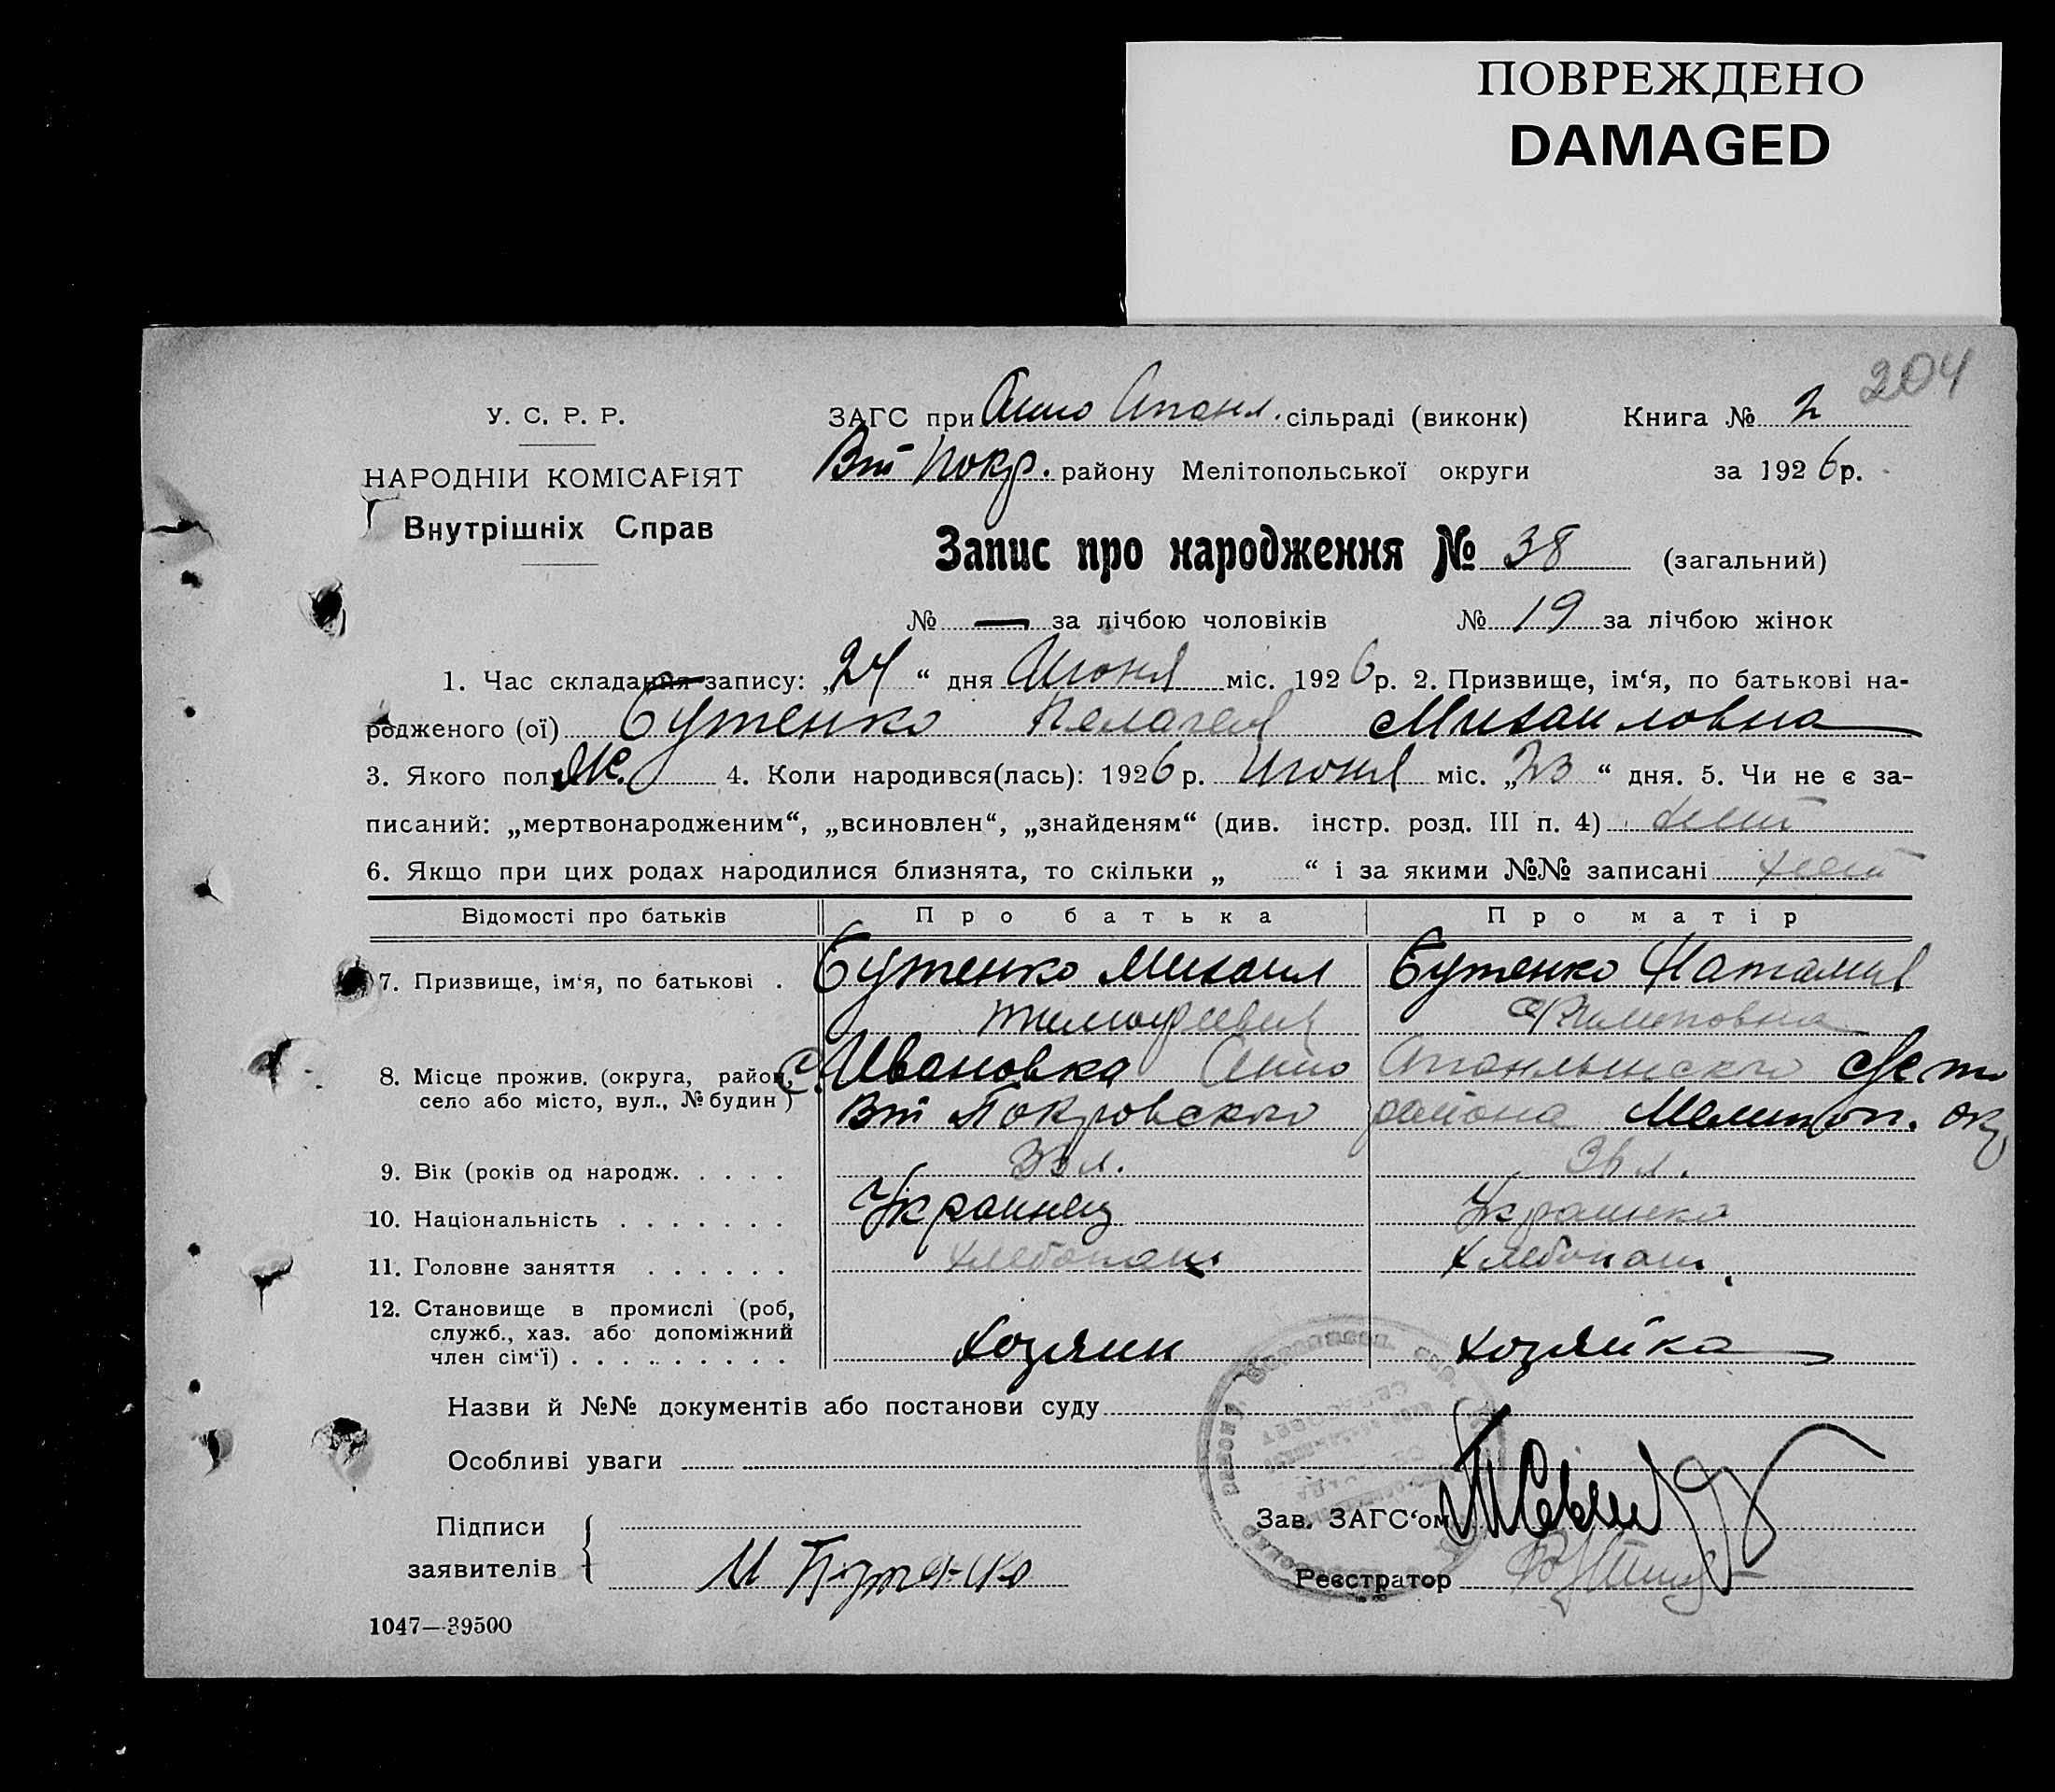 ПОВРЕЖДЕНО
DAMAGED
204
У. С. Р. Р.
ЗАГС при Анно Опанл. сільраді (виконк) Книга № 2
Вт Покр. району Мелітопольської округи за 1926 р.
НАРОДНІЙ КОМІСАРІЯТ
Внутрішніх Справ
Запис про народження № 38 (загальний)
№ — за лічбою чоловіків № 19 за лічбою жінок
1. Час складання запису: „24“ дня Июня міс. 1926 р. 2. Призвище, ім‘я, по батькові на-
родженого (ої) Бутенко Пелагея Михаиловна
3. Якого пол Ж. 4. Коли народився(лась): 1926 р. Июня міс. „23“ дня. 5. Чи не є за-
писаний: „мертвонародженим“, „всиновлен“, „знайденям“ (див. інстр. розд. III п. 4) нет
6. Якщо при цих родах народилися близнята, то скільки „ “ і за якими №№ записані нет
Відомості про батьків Про батька Про матір
7. Призвище, ім‘я, по батькові . Бутенко Михаил Бутенко Наталия
Тимофеевич Филиповна
8. Місце прожив. (округа, район, с. Ивановка Анно
село або місто, вул., № будин ) Вт Покровского района Мелитоп. окр
9. Вік (років од народж. . . . . 33 л.
10. Національність . . . . . . . Украинец Украинка
11. Головне заняття . . . . . . хлебопаш. хлебопаш.
12. Становище в промислі (роб,
служб., хаз. або допоміжний
член сім‘ї) . . . . . . . . . хозяин хозяйка
Назви й №№ документів або постанови суду
Особливі уваги
Підписи
заявителів М Бутенко
Зав. ЗАГС‘ом
Реєстратор
1047—39500